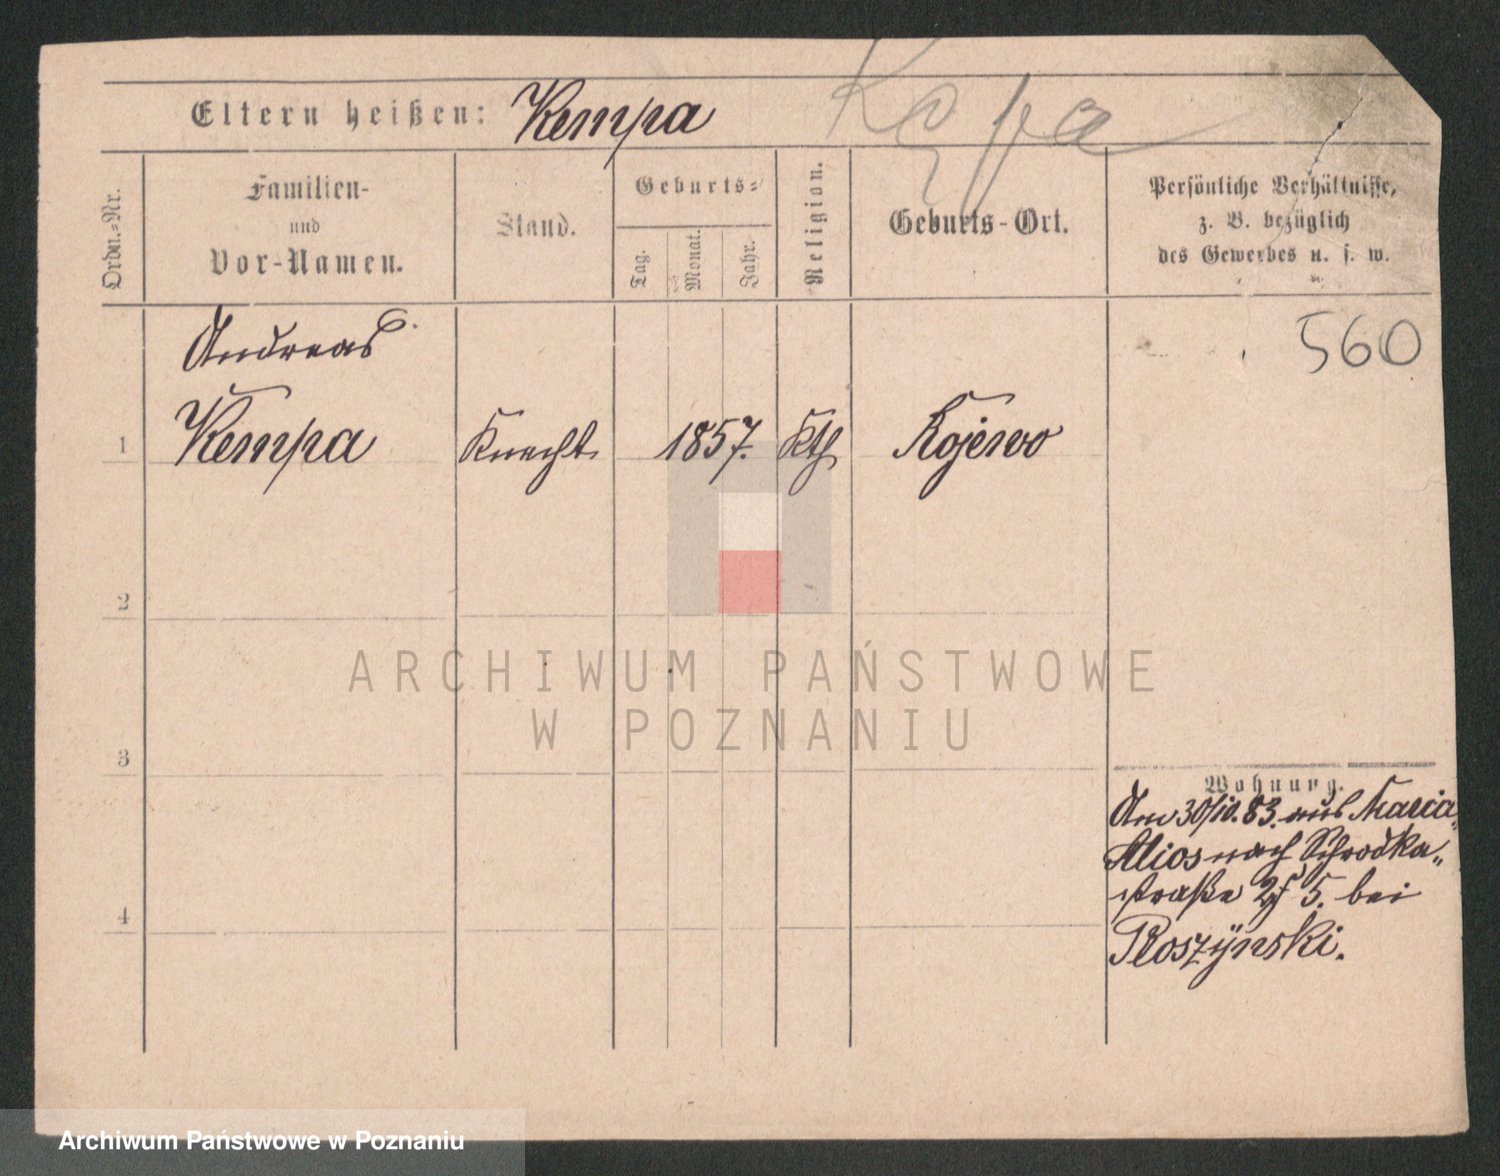 Eltern heißen: Kempa Kępa
Ordn.-Nr.
Familien-
und
Vor-Namen.
Stand.
Geburts-
Tag.
Monat.
Jahr.
Religion.
Geburts-Ort.
Persönliche Verhältnisse,
z. B. bezüglich
des Gewerbes u. s. w.
560
Andreas
1 Kempa Knecht 1857. Kth Kojewo
2
3
4
Wohnung.
Am 30/10. 83. aus Maria
nach Schrodka„
straße 5. bei
Roszÿnski.
ARCHIWUM PAŃSTWOWE
W POZNANIU
Archiwum Państwowe w Poznaniu